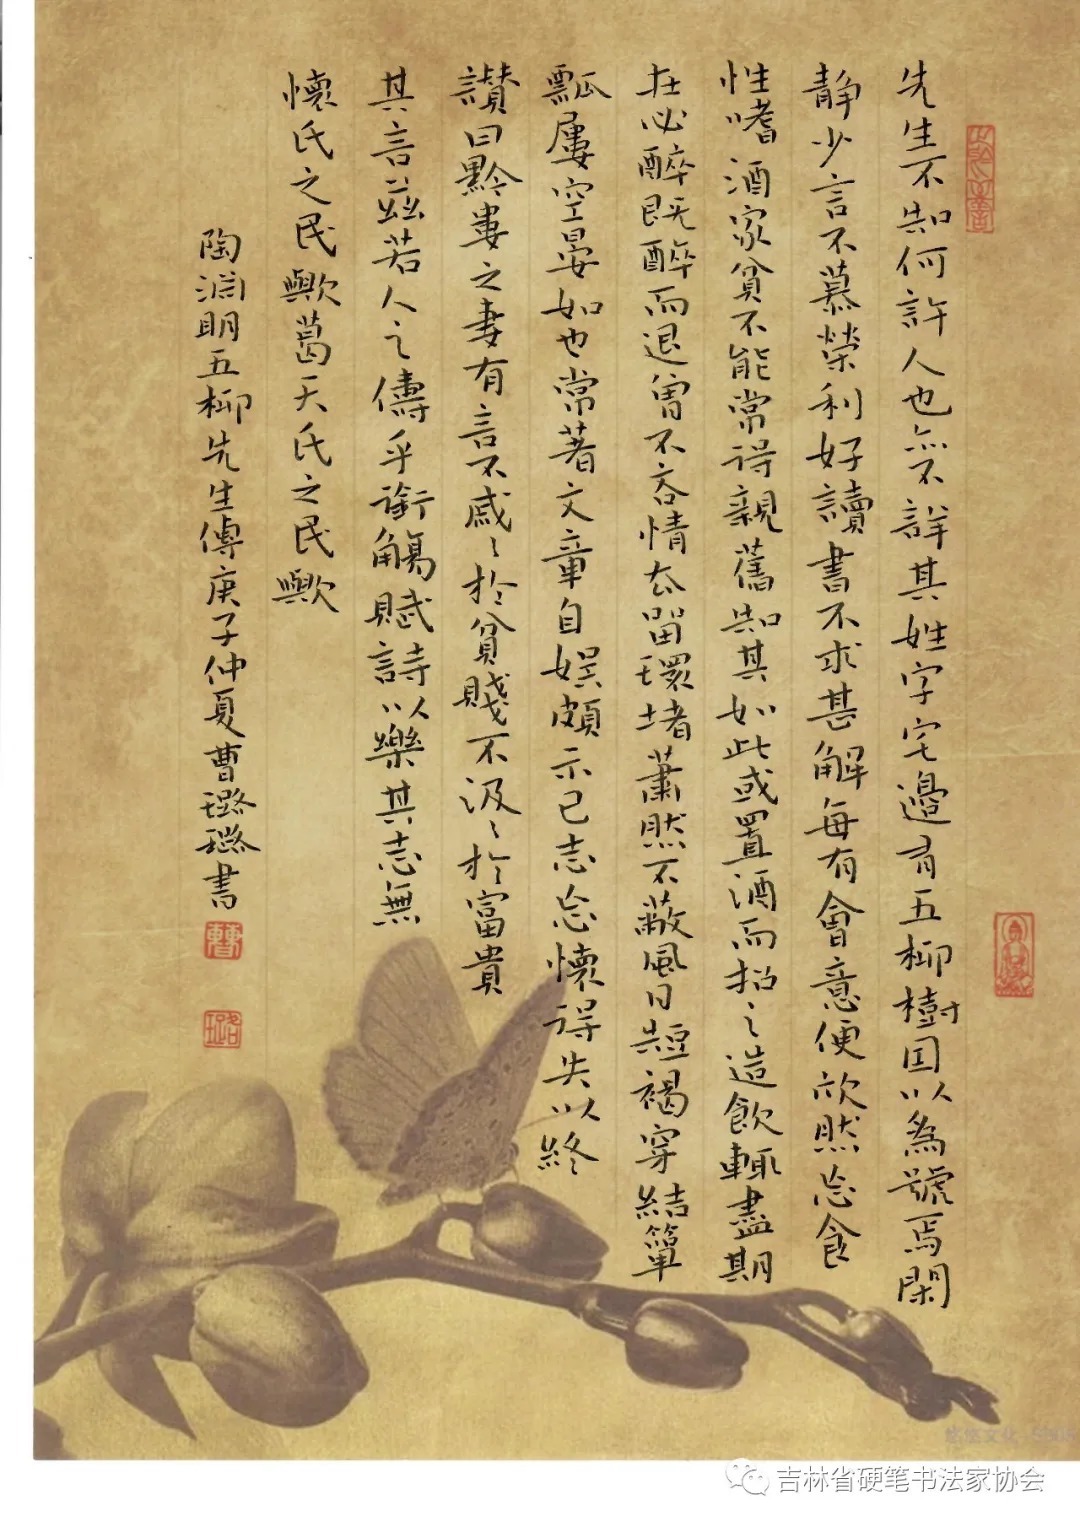 先生不知何許人也亦不詳其姓字宅邊有五柳樹因以為號焉閑
静少言不慕榮利好讀書不求甚解每有會意便欣然忘食
性嗜酒家貧不能常得親舊知其如此或置酒而招之造飲輒盡期
在必醉既醉而退曾不吝情去留環堵蕭然不蔽風日短褐穿結簞
瓢屢空晏如也常著文章自娱頗示己志忘懷得失以終
讃曰黔婁之妻有言不戚〻於貧賤不汲〻於富貴
其言茲若人之儔乎銜觴賦詩以樂其志無
懷氏之民歟葛天氏之民歟
陶淵明五柳先生傳庚子仲夏曹璐璐書
曹
璐
悠悠文化
吉林省硬笔书法家协会